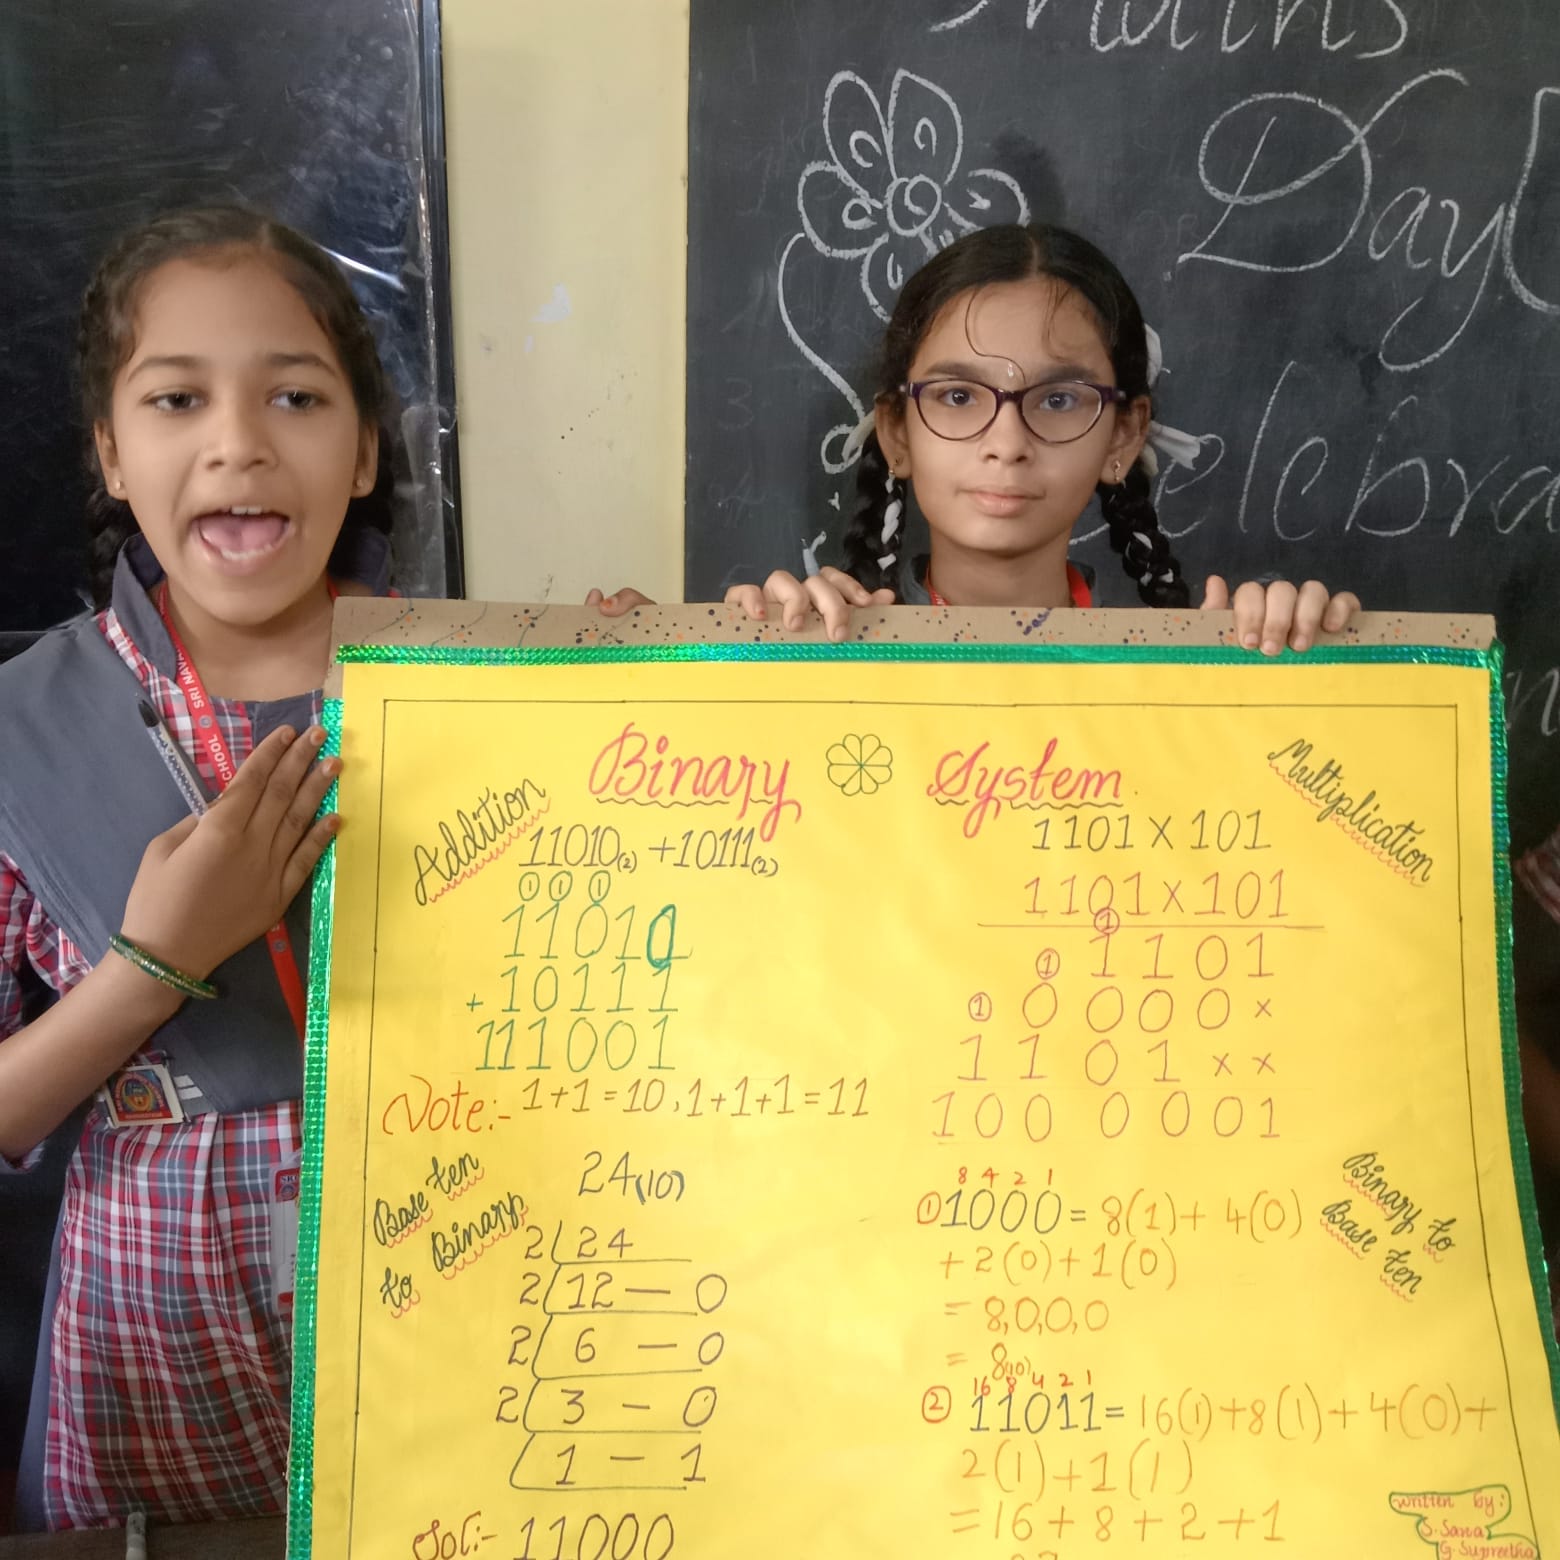 Maths
Day
Celebra
SRI NAVA
SCHOOL
Binary System
Addition
11010(2) +10111(2)
1 1 1
11010
+ 10111
111001
Note:- 1+1=10,1+1+1=11
Multiplication
1101 X 101
1101 X 101
1
1 1101
1 0000 ×
1101 × ×
1000001
Base ten
to Binary
24(10)
2 24
2 12 — 0
2 6 — 0
2 3 — 0
1 — 1
Sol:- 11000
Binary to
Base ten
8 4 2 1
① 1000 = 8(1)+ 4(0)
+2(0)+1(0)
= 8,0,0,0
= 8(10)
16 8 4 2 1
② 11011= 16(1)+8(1)+4(0)+
2(1)+1(1)
=16+8+2+1
written by:
S.Sana
G.Supreetha